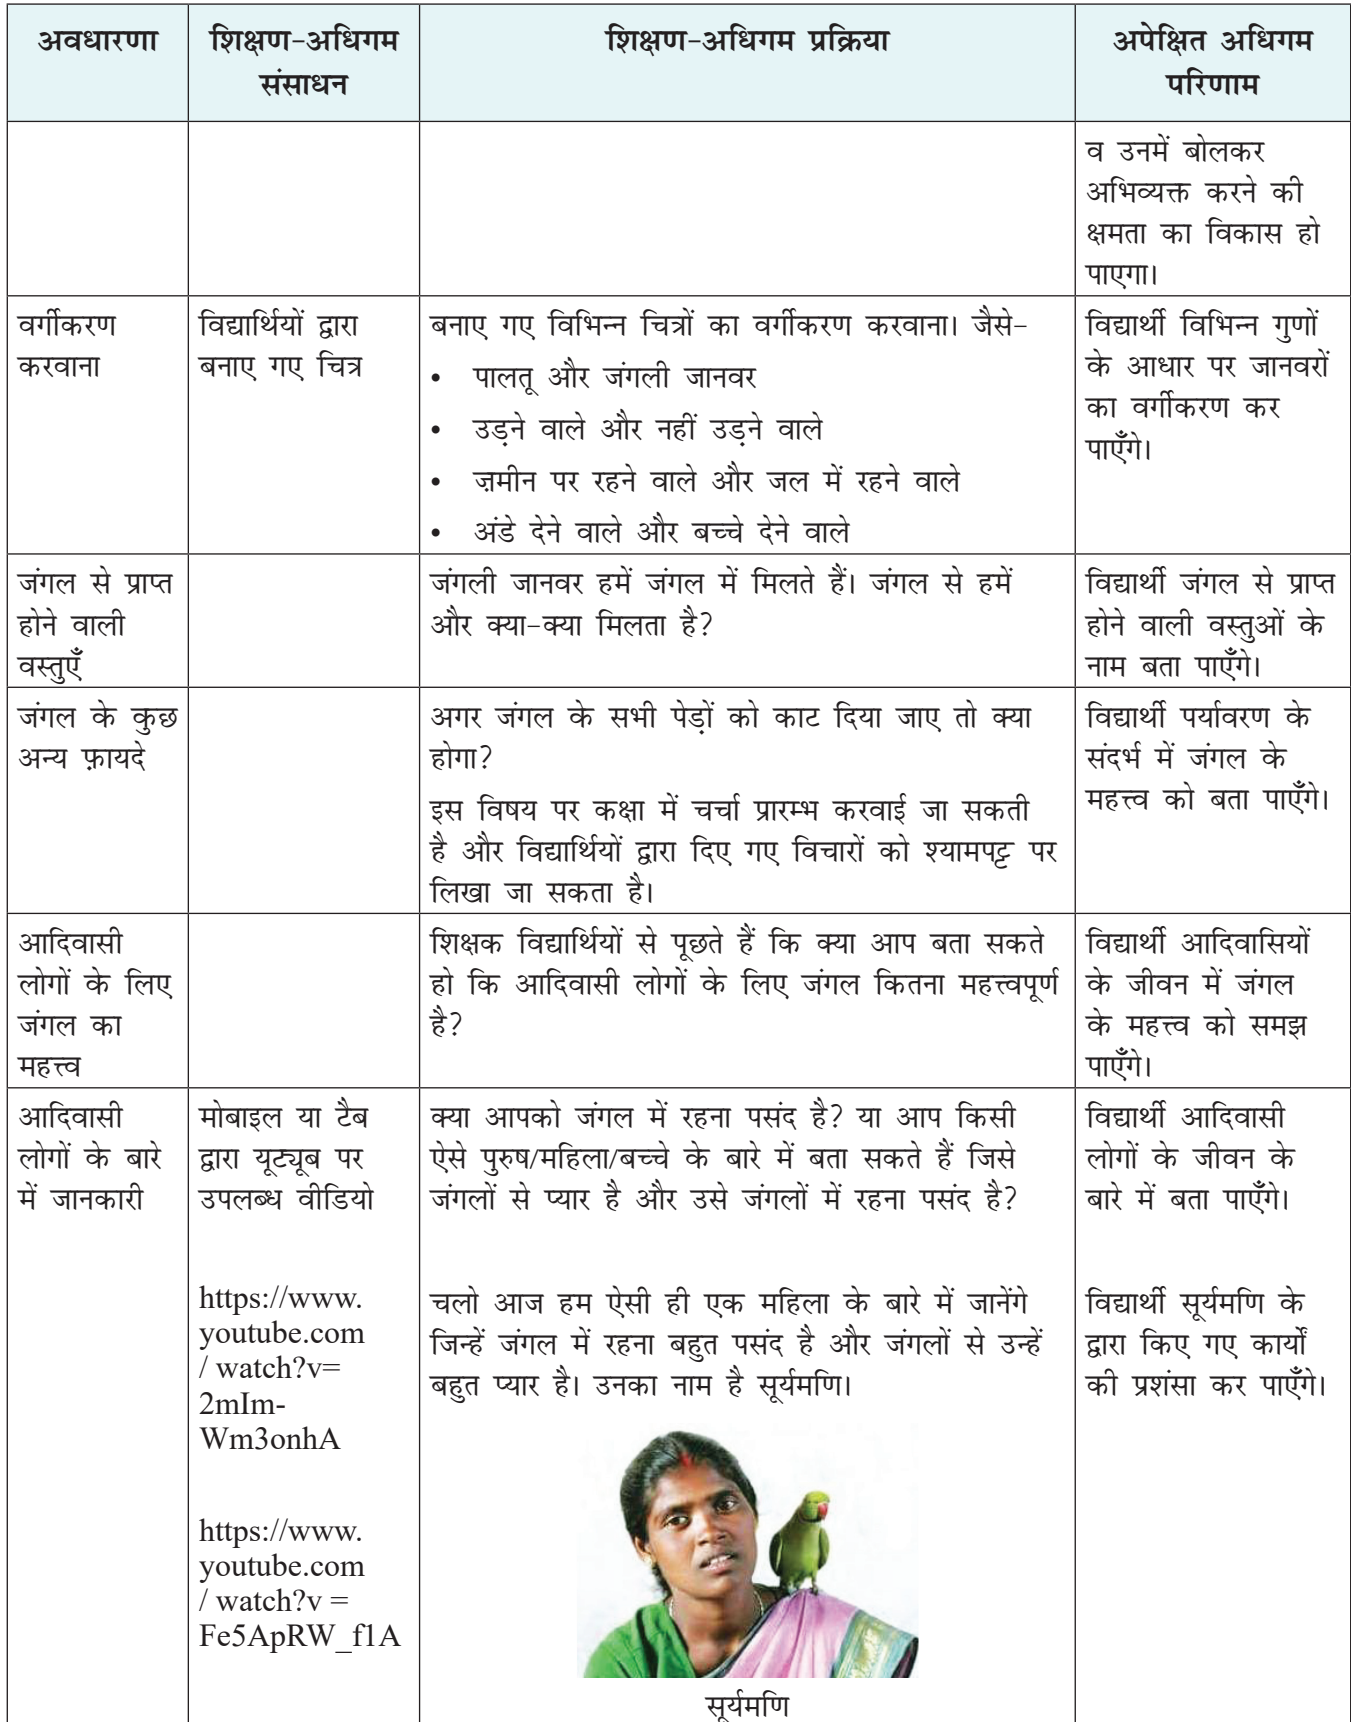 अवधारणा
शिक्षण-अधिगम
संसाधन
शिक्षण-अधिगम प्रक्रिया
अपेक्षित अधिगम
परिणाम
व उनमें बोलकर
अभिव्यक्त करने की
क्षमता का विकास हो
पाएगा।
वर्गीकरण
करवाना
विद्यार्थियों द्वारा
बनाए गए चित्र
बनाए गए विभिन्न चित्रों का वर्गीकरण करवाना। जैसे-
• पालतू और जंगली जानवर
• उड़ने वाले और नहीं उड़ने वाले
• ज़मीन पर रहने वाले और जल में रहने वाले
• अंडे देने वाले और बच्चे देने वाले
विद्यार्थी विभिन्न गुणों
के आधार पर जानवरों
का वर्गीकरण कर
पाएँगे।
जंगल से प्राप्त
होने वाली
वस्तुएँ
जंगली जानवर हमें जंगल में मिलते हैं। जंगल से हमें
और क्या-क्या मिलता है?
विद्यार्थी जंगल से प्राप्त
होने वाली वस्तुओं के
नाम बता पाएँगे।
जंगल के कुछ
अन्य फ़ायदे
अगर जंगल के सभी पेड़ों को काट दिया जाए तो क्या
होगा?
इस विषय पर कक्षा में चर्चा प्रारम्भ करवाई जा सकती
है और विद्यार्थियों द्वारा दिए गए विचारों को श्यामपट्ट पर
लिखा जा सकता है।
विद्यार्थी पर्यावरण के
संदर्भ में जंगल के
महत्त्व को बता पाएँगे।
आदिवासी
लोगों के लिए
जंगल का
महत्त्व
शिक्षक विद्यार्थियों से पूछते हैं कि क्या आप बता सकते
हो कि आदिवासी लोगों के लिए जंगल कितना महत्त्वपूर्ण
है?
विद्यार्थी आदिवासियों
के जीवन में जंगल
के महत्त्व को समझ
पाएँगे।
आदिवासी
लोगों के बारे
में जानकारी
मोबाइल या टैब
द्वारा यूट्यूब पर
उपलब्ध वीडियो
https://www.
youtube.com
/ watch?v=
2mIm-
Wm3onhA
https://www.
youtube.com
/ watch?v =
Fe5ApRW_f1A
क्या आपको जंगल में रहना पसंद है? या आप किसी
ऐसे पुरुष/महिला/बच्चे के बारे में बता सकते हैं जिसे
जंगलों से प्यार है और उसे जंगलों में रहना पसंद है?
चलो आज हम ऐसी ही एक महिला के बारे में जानेंगे
जिन्हें जंगल में रहना बहुत पसंद है और जंगलों से उन्हें
बहुत प्यार है। उनका नाम है सूर्यमणि।
सूर्यमणि
विद्यार्थी आदिवासी
लोगों के जीवन के
बारे में बता पाएँगे।
विद्यार्थी सूर्यमणि के
द्वारा किए गए कार्यों
की प्रशंसा कर पाएँगे।